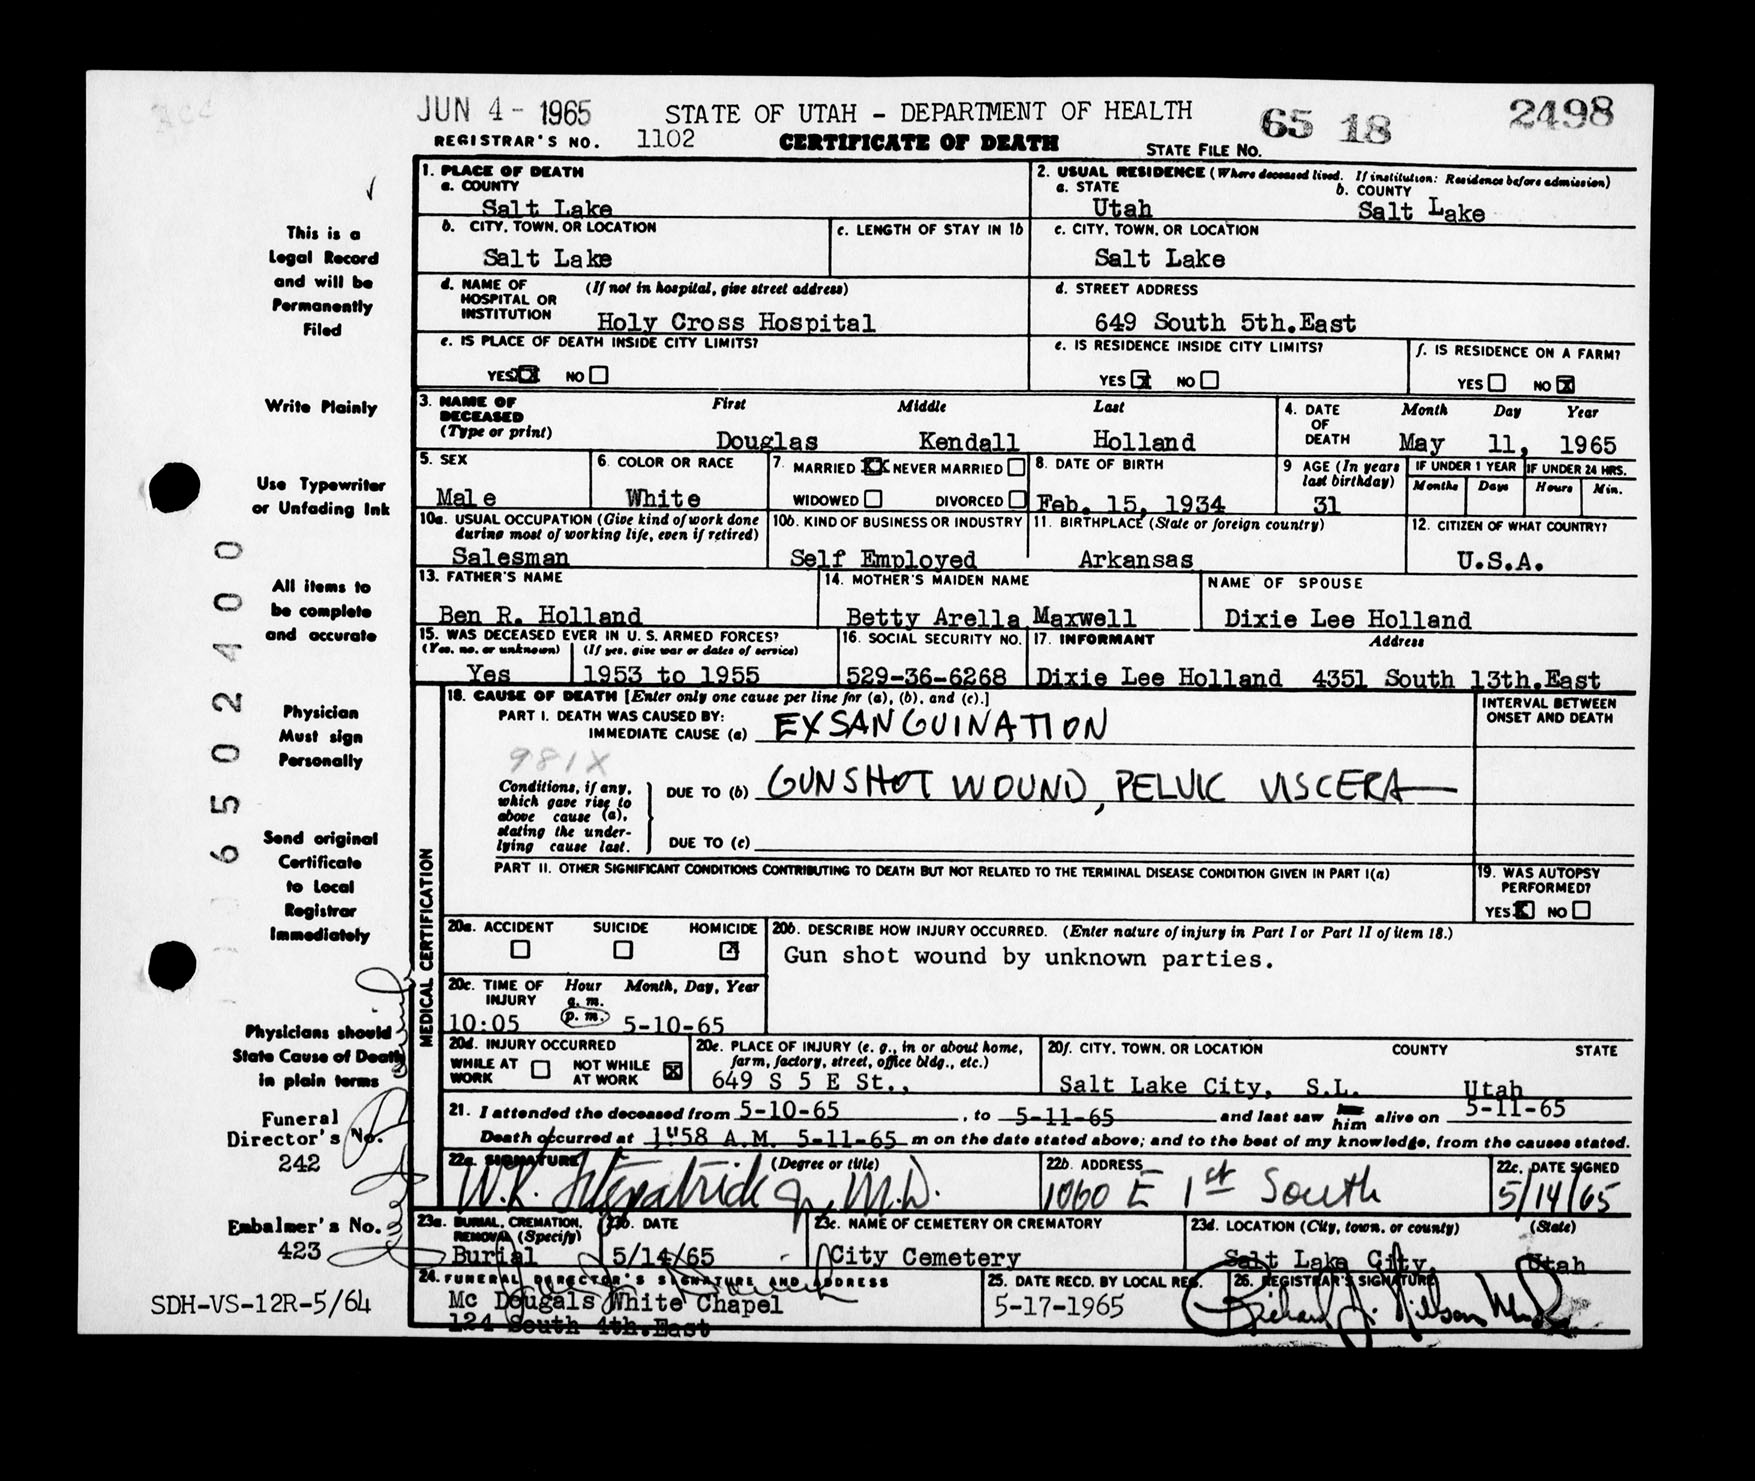 JUN 4 - 1965 STATE OF UTAH - DEPARTMENT OF HEALTH 65 18 2498
REGISTRAR'S NO. 1102 CERTIFICATE OF DEATH STATE FILE NO.
1. PLACE OF DEATH
a. COUNTY
Salt Lake
2. USUAL RESIDENCE (Where deceased lived. If institution: Residence before admission)
a. STATE b. COUNTY
Utah Salt Lake
b. CITY, TOWN, OR LOCATION
Salt Lake
c. LENGTH OF STAY IN 1b
c. CITY, TOWN, OR LOCATION
Salt Lake
d. NAME OF HOSPITAL OR INSTITUTION (If not in hospital, give street address)
Holy Cross Hospital
d. STREET ADDRESS
649 South 5th.East
e. IS PLACE OF DEATH INSIDE CITY LIMITS?
YES X NO
e. IS RESIDENCE INSIDE CITY LIMITS?
YES X NO
f. IS RESIDENCE ON A FARM?
YES NO X
3. NAME OF DECEASED (Type or print)
First Middle Last
Douglas Kendall Holland
4. DATE OF DEATH Month Day Year
May 11, 1965
5. SEX
Male
6. COLOR OR RACE
White
7. MARRIED X NEVER MARRIED
WIDOWED DIVORCED
8. DATE OF BIRTH
Feb. 15, 1934
9 AGE (In years last birthday)
31
IF UNDER 1 YEAR
Months Days
IF UNDER 24 HRS.
Hours Min.
10a. USUAL OCCUPATION (Give kind of work done during most of working life, even if retired)
Salesman
10b. KIND OF BUSINESS OR INDUSTRY
Self Employed
11. BIRTHPLACE (State or foreign country)
Arkansas
12. CITIZEN OF WHAT COUNTRY?
U.S.A.
13. FATHER'S NAME
Ben R. Holland
14. MOTHER'S MAIDEN NAME
Betty Arella Maxwell
NAME OF SPOUSE
Dixie Lee Holland
15. WAS DECEASED EVER IN U. S. ARMED FORCES?
(Yes, no, or unknown) (If yes, give war or dates of service)
Yes 1953 to 1955
16. SOCIAL SECURITY NO.
529-36-6268
17. INFORMANT Address
Dixie Lee Holland 4351 South 13th.East
MEDICAL CERTIFICATION
18. CAUSE OF DEATH [Enter only one cause per line for (a), (b), and (c).]
INTERVAL BETWEEN ONSET AND DEATH
PART I. DEATH WAS CAUSED BY:
IMMEDIATE CAUSE (a) EXSANGUINATION
981X
Conditions, if any, which gave rise to above cause (a), stating the underlying cause last.
DUE TO (b) GUNSHOT WOUND, PELVIC VISCERA
DUE TO (c)
PART II. OTHER SIGNIFICANT CONDITIONS CONTRIBUTING TO DEATH BUT NOT RELATED TO THE TERMINAL DISEASE CONDITION GIVEN IN PART I(a)
19. WAS AUTOPSY PERFORMED?
YES X NO
20a. ACCIDENT SUICIDE HOMICIDE
X
20b. DESCRIBE HOW INJURY OCCURRED. (Enter nature of injury in Part I or Part II of item 18.)
Gun shot wound by unknown parties.
20c. TIME OF INJURY Hour Month, Day, Year
a. m.
p. m.
10:05 5-10-65
20d. INJURY OCCURRED
WHILE AT WORK NOT WHILE AT WORK X
20e. PLACE OF INJURY (e. g., in or about home, farm, factory, street, office bldg., etc.)
649 S 5 E St.,
20f. CITY, TOWN, OR LOCATION COUNTY STATE
Salt Lake City, S.L. Utah
21. I attended the deceased from 5-10-65, to 5-11-65 and last saw him alive on 5-11-65
Death occurred at 1"58 A.M. 5-11-65 m on the date stated above; and to the best of my knowledge, from the causes stated.
22a. SIGNATURE (Degree or title)
W.K. Fitzpatrick Jr, M.D.
22b. ADDRESS
1060 E 1st South
22c. DATE SIGNED
5/14/65
23a. BURIAL, CREMATION, REMOVAL (Specify)
Burial
23b. DATE
5/14/65
23c. NAME OF CEMETERY OR CREMATORY
City Cemetery
23d. LOCATION (City, town, or county) (State)
Salt Lake City, Utah
24. FUNERAL DIRECTOR'S SIGNATURE AND ADDRESS
Mc Dougals White Chapel
124 South 4th.East
25. DATE RECD. BY LOCAL REG.
5-17-1965
26. REGISTRAR'S SIGNATURE
Richard J. Nilson M.D.
This is a
Legal Record
and will be
Permanently
Filed
Write Plainly
Use Typewriter
or Unfading Ink
All items to
be complete
and accurate
Physician
Must sign
Personally
Send original
Certificate
to Local
Registrar
Immediately
Physicians should
State Cause of Death
in plain terms
Funeral
Director's No.
242
Embalmer's No.
423
SDH-VS-12R-5/64
6502400